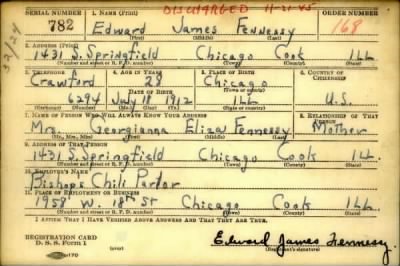 DISCHARGED 11-21-45
SERIAL NUMBER 1. NAME (Print) ORDER NUMBER
782 Edward James Fennessy 168
(First) (Middle) (Last)
2. ADDRESS (Print)
1431 S. Springfield Chicago Cook Ill
(Number and street or R. F. D. number) (Town) (County) (State)
3. TELEPHONE 4. AGE IN YEARS 5. PLACE OF BIRTH 6. COUNTRY OF CITIZENSHIP
Crawford 28 Chicago
DATE OF BIRTH (Town or county)
6294 July 18 1912 Ill U.S.
(Exchange) (Number) (Mo.) (Day) (Yr.) (State or country)
7. NAME OF PERSON WHO WILL ALWAYS KNOW YOUR ADDRESS 8. RELATIONSHIP OF THAT PERSON
Mrs. Georgianna Eliza Fennessy Mother
(Mr., Mrs., Miss) (First) (Middle) (Last)
9. ADDRESS OF THAT PERSON
1431 S. Springfield Chicago Cook Ill.
(Number and street or R. F. D. number) (Town) (County) (State)
10. EMPLOYER'S NAME
Bishops Chili Parlor
11. PLACE OF EMPLOYMENT OR BUSINESS
1958 W. 18th St Chicago Cook Ill
(Number and street or R. F. D. number) (Town) (County) (State)
I AFFIRM THAT I HAVE VERIFIED ABOVE ANSWERS AND THAT THEY ARE TRUE.
REGISTRATION CARD
D. S. S. Form 1 (over) Edward James Fennessy
(Registrant's signature)